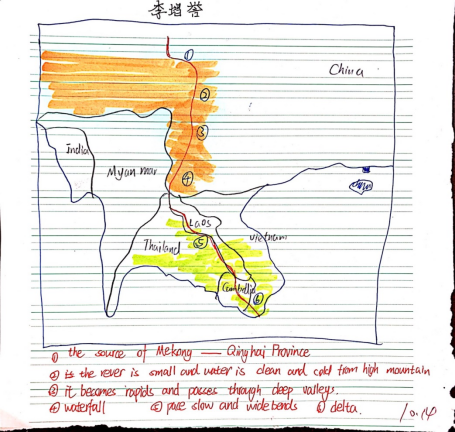 李增誉
①
China
②
③
India
Myanmar
④
Laos
Vietnam
Thailand
⑤
Cambodia
⑥
① the source of Mekong — Qinghai Province
② is the rever is small and water is clean and cold from high mountain
③ it becomes rapids and passes through deep valleys.
④ waterfall ⑤ pace slow and wide bends ⑥ delta.
10.14